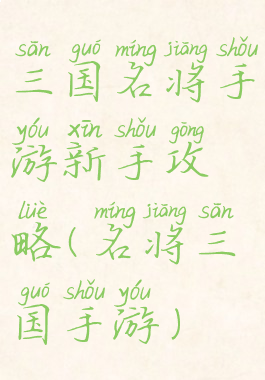 sān guó míng jiāng shǒu
三国名将手
yóu xīn shǒu gōng
游新手攻
lüè míng jiāng sān
略(名将三
guó shǒu yóu
国手游)